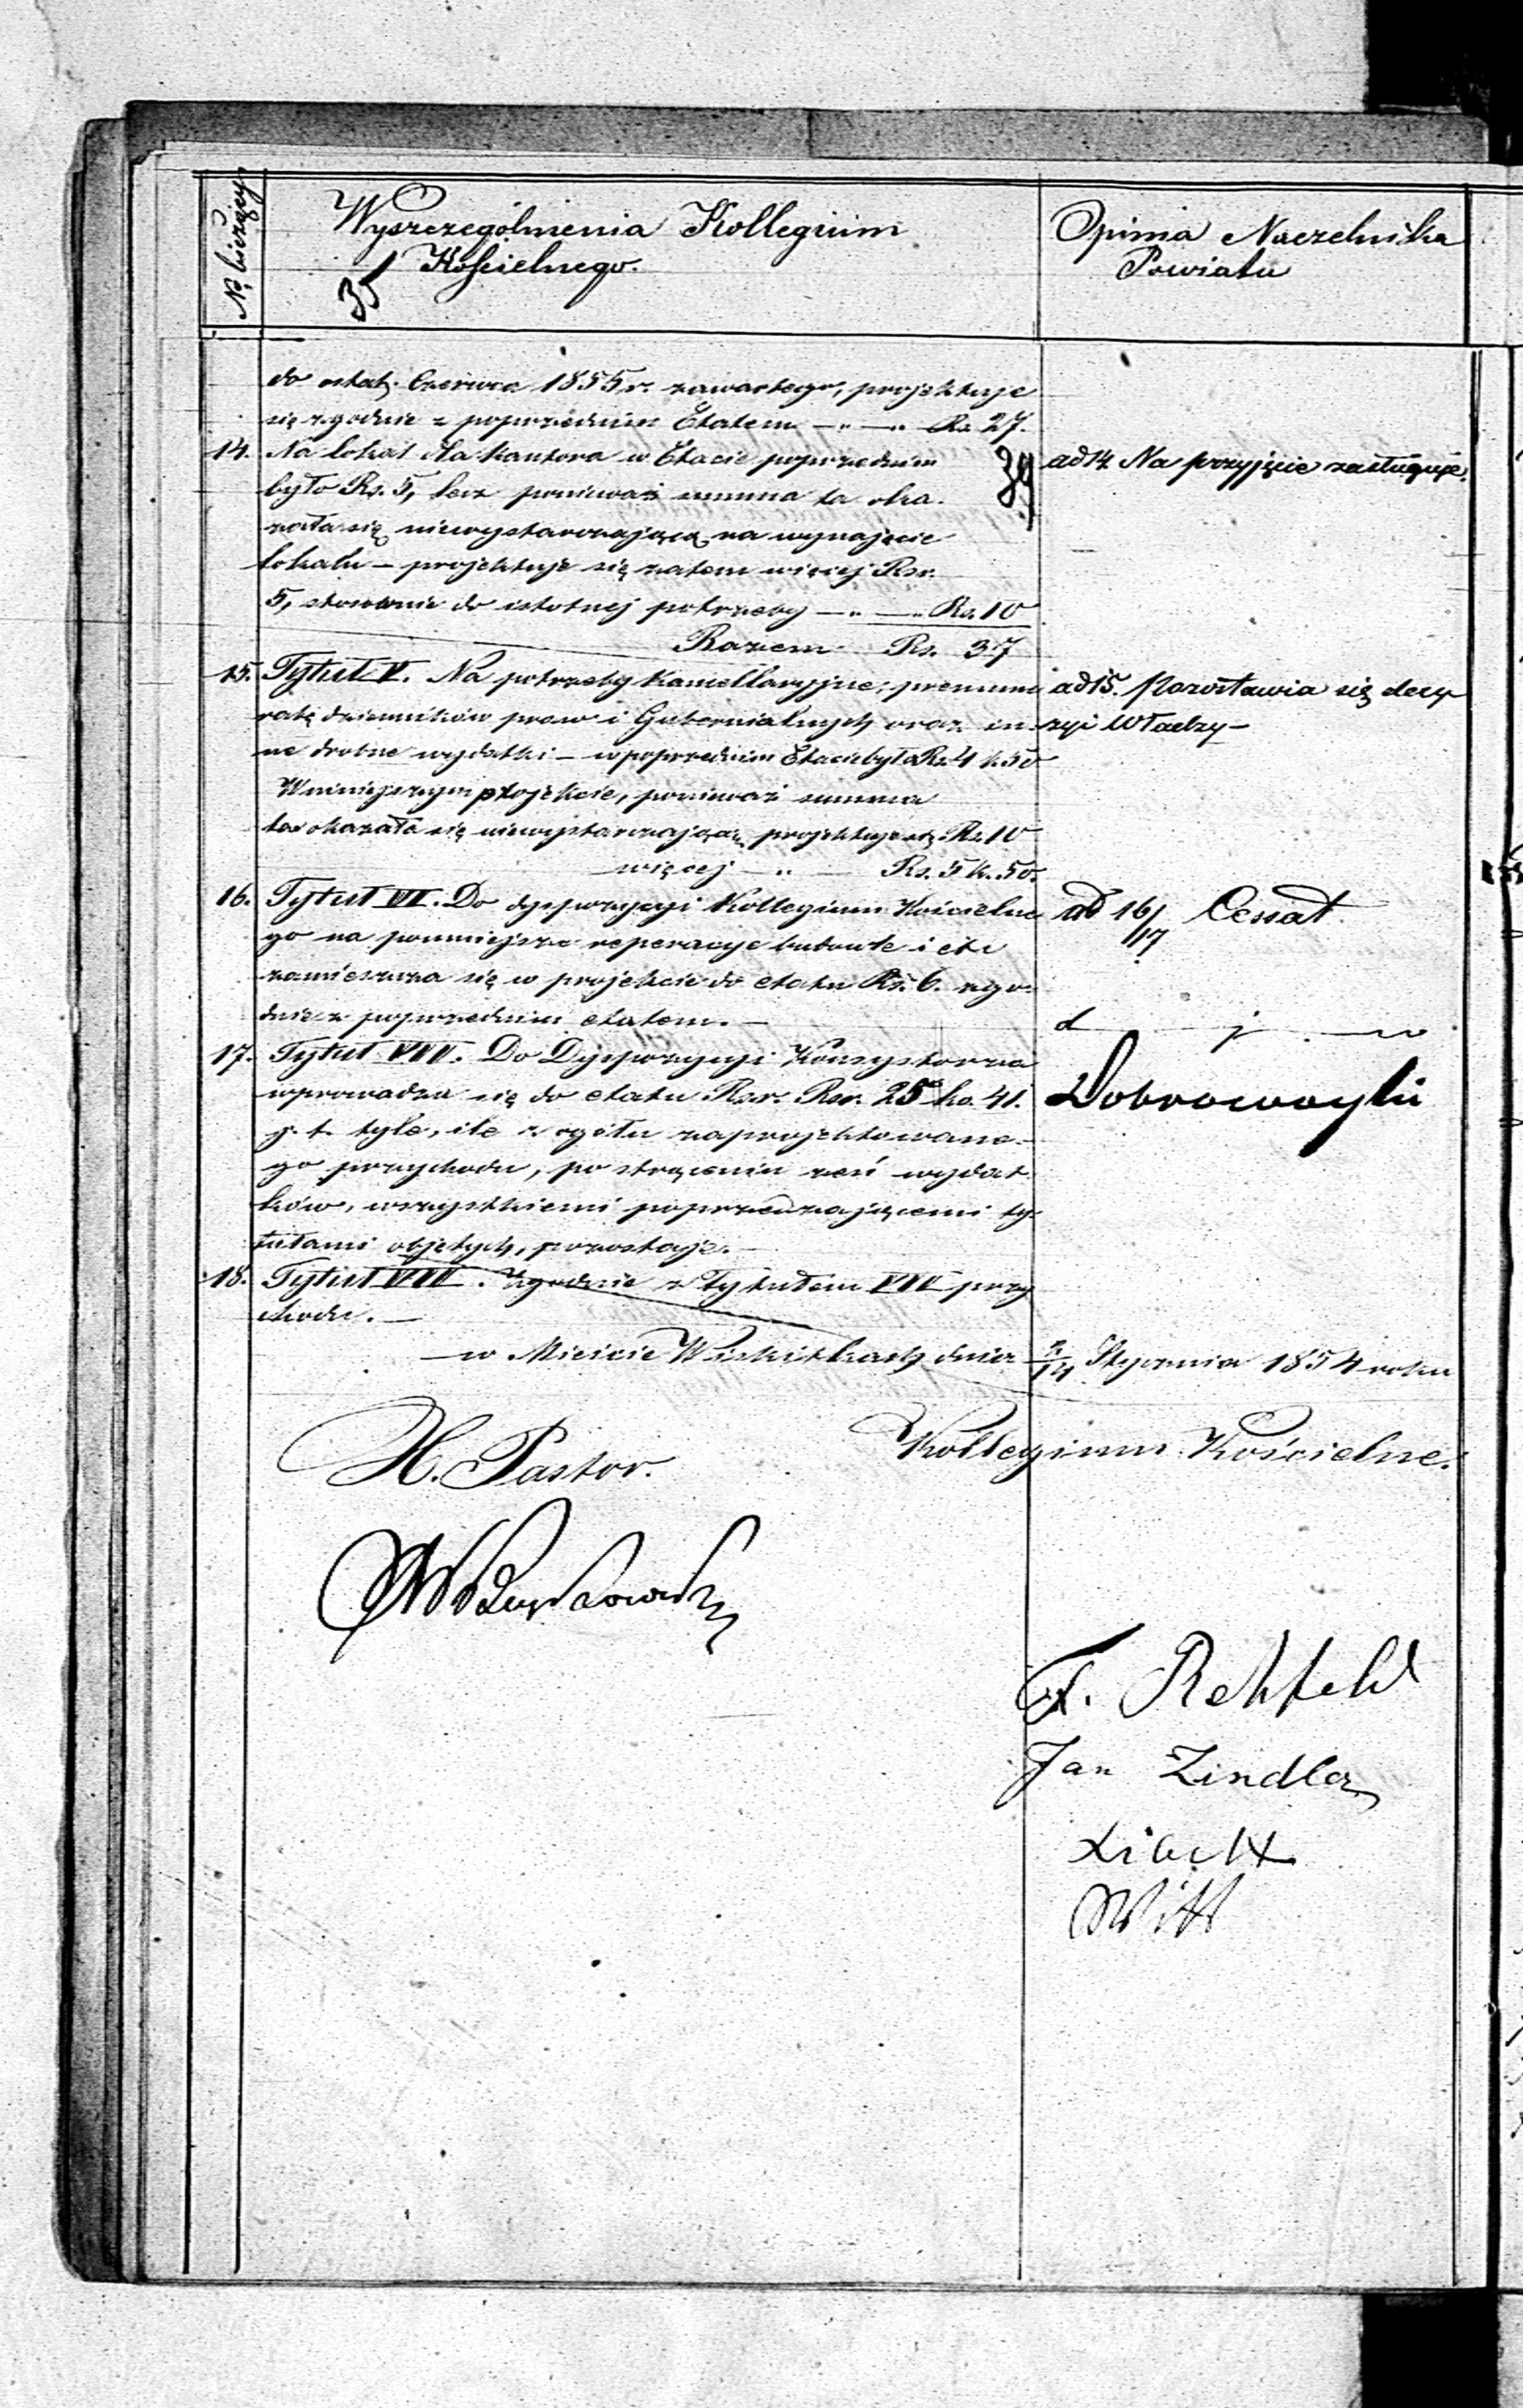 № bieżący
Wyszczególnienia Kollegium
Kościelnego.
35
Opinia Naczelnika
Powiatu
do ostat. Czerwca 1855 r. zawartego, projektuje
się zgodnie z poprzednim Etatem — „ — „ Rs. 27.
14. Na lokal dla kantora w Etacie poprzednim
było Rs. 5, lecz ponieważ summa ta oka-
zała się niewystarczającą na wynajęcie
lokalu — projektuje się zatem więcej Rsr.
5, stosownie do istotnej potrzeby — „ — „ Rs. 10
Razem Rs. 37
ad 14. Na przyjęcie zasługuje.
15. Tytuł V. Na potrzeby kancellaryjne, prenume
ratę dzienników praw i Gubernialnych oraz in-
ne drobne wydatki — w poprzednim Etacie było Rs. 4 k. 50
W niniejszym projekcie, ponieważ summa
ta okazała się niewystarczającą, projektuje się Rs. 10
więcej — „ — Rs. 5 k. 50.
ad 15. Pozostawia się decy
zyi Władzy —
16. Tytuł VI. Do dyspozycyi Kollegium Kościelne
go na pomniejsze reperacye budowle i etc
zamieszcza się w projekcie do etatu Rs. 6. zgo-
dnie z poprzednim etatem. —
ad 16/17 Cessat
17. Tytuł VII. Do Dyspozycyi Konsystorza
wprowadza się do etatu Rsr. Rsr. 25 ko. 41.
j. t. tyle, ile z ogółu zaprojektowane-
go przychodu, po strąceniu zeń wydat-
ków, wszystkiemi poprzedzającemi ty-
tułami objętych, pozostaje. —
18. Tytuł VIII. Zgodnie z Tytułem VIII przy
chodu. —
w Mieście Wiskitkach dnia 2/14 Stycznia 1854 roku
H. Pastor.
Kollegium Kościelne.
F. Rehfeld
Jan Zindler
Libelt
Witt